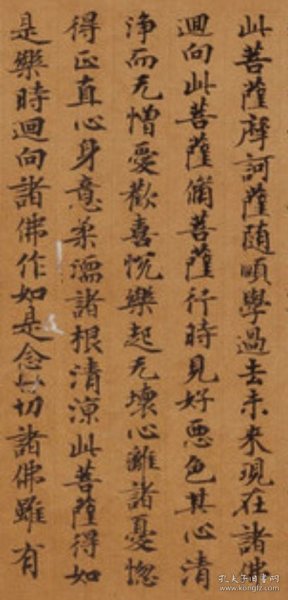 此菩薩摩訶薩随順學過去未来現在諸佛
迴向此菩薩俻菩薩行時見好惡色其心清
浄而无憎愛歡喜悅樂起无壞心離諸憂惚
得正直心身意柔濡諸根清涼此菩薩得如
是樂時迴向諸佛作如是念一切諸佛雖有
孔夫子旧书网